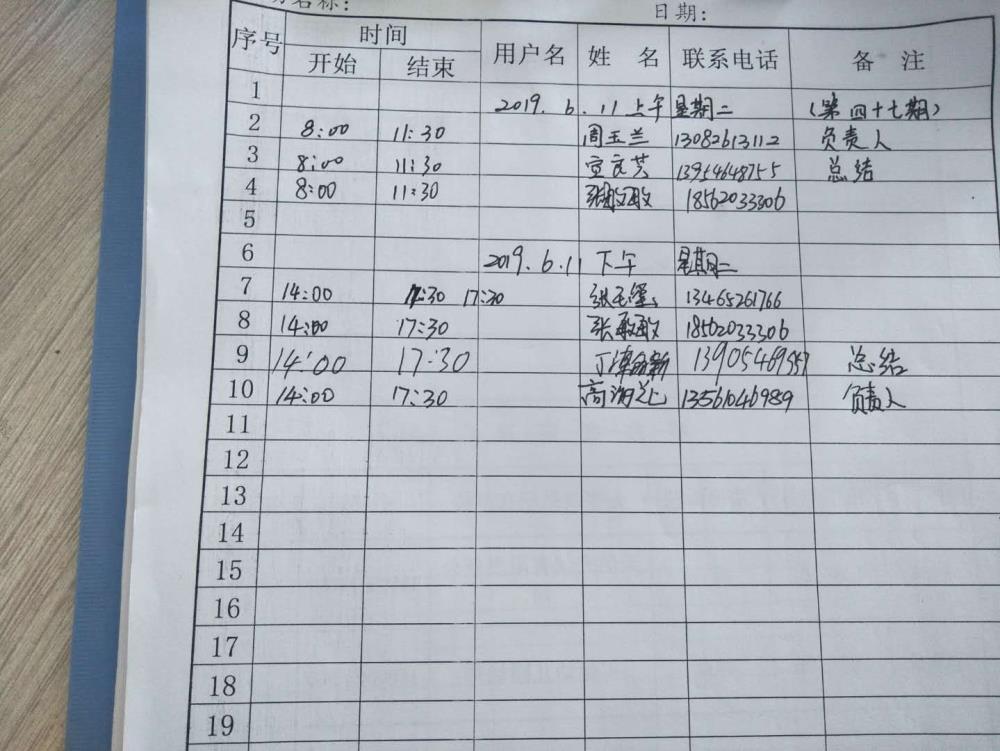 名称： 日期：
序号 时间 用户名 姓 名 联系电话 备 注
开始 结束
1 2019.6.11 上午 星期二 (第四十七期)
2 8:00 11:30 周玉兰 13082613112 负责人
3 8:00 11:30 13954648755 总结
4 8:00 11:30 张敏敏 18562033306
5
6 2019.6.11 下午 星期二
7 14:00 17:30 13465261766
8 14:00 17:30 张敏敏 18562033306
9 14:00 17:30 总结
10 14:00 17:30 13561046989 负责人
11
12
13
14
15
16
17
18
19